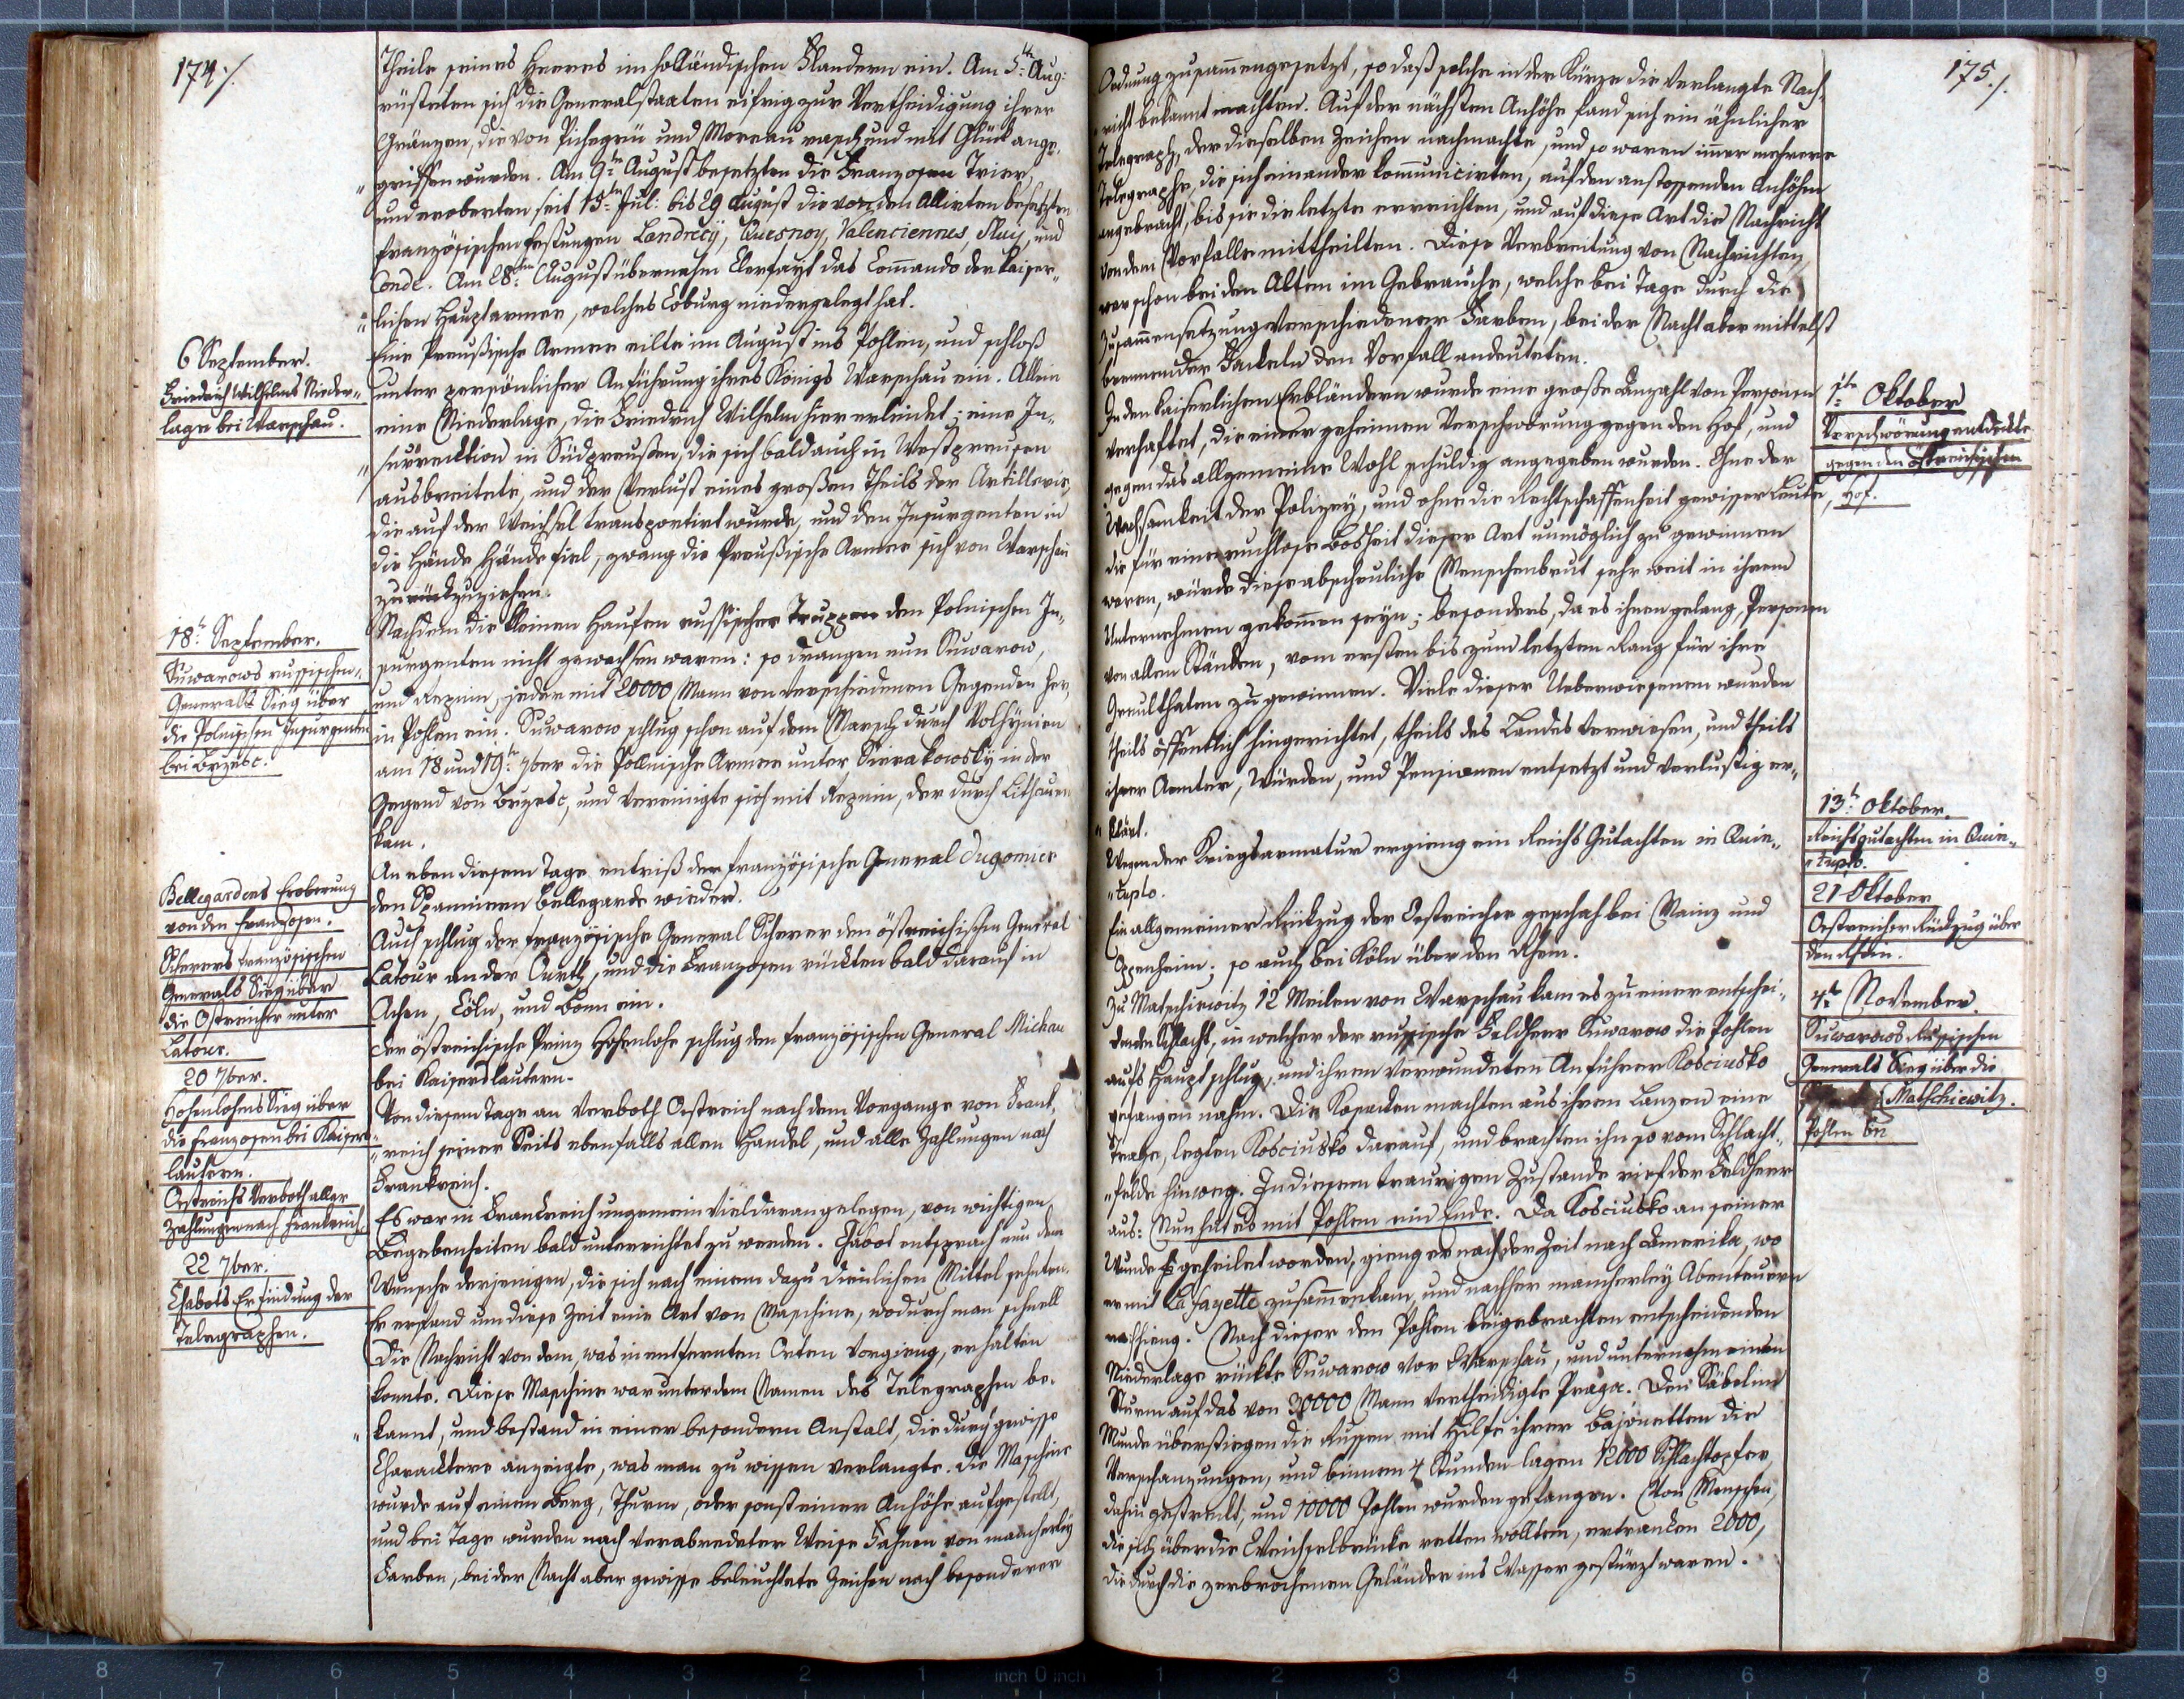 174./.
Theile seines Heeres im holländischen Flandern ein. Am 5.ten Aug:
rüsteten sich die Generalstaaten eifrig zur Vertheidigung ihrer
Gränzen, die von Pichegrü und Moreau rasch und mit Glück ange-
"griffen wurden. Am 9.ten August besetzten die Franzosen Trier,
und eroberten seit 15.ten Jul: bis 29 August die von den Allirten besetzten
französischen Festungen Landrecÿ, Quesnoy, Valenciennes, und
Conde. Am 28.ten August übernahm Clerfayt das Com̄ando der kaiser-
"lichen Hauptarmee, welches Coburg niedergelegt hat.
6 September.
Friedrich Wilhelms Nieder-
lage bei Warschau.
Eine Preußische Armee eilte im August ins Pohlen, und schloß
unter persönlicher Anführung ihres Königs Warschau ein. Allein
eine Niederlage, die Friedrich Wilhelm hier erleidet; eine In-
"surrecktion in Südpreußen, die sich bald auch in Westpreusen
ausbreitete, und der Verlust eines großen Theils der Artillerie,
die auf der Weichsel transportirt wurde, und den Insurgenten in
die Hände Hände fiel, zwang die Preußische Armee sich von Warschau
zurückzuziehen.
18.t September.
Suwarows russischen
Generals Sieg über
die Polnischen Insurgenten
bei Brzesc.
Nachdem die kleinen Haufen russischer Truppen den Polnischen In-
surgenten nicht gewachsen waren: so drangen nun Suwarow,
und Repnin, jeder mit 20000 Mann von verschiedenen Gegenden her,
in Pohlen ein. Suwarow schlug schon auf dem Marsch durch Volhÿnien
am 18 und 19.ten 7ber die Pollnische Armee unter Sierakowskÿ in der
Gegend von Brzesc, und vereinigte sich mit Repnin, der durch Lithauen
kam.
Bellegardens Eroberung
von den Franzosen.
An eben diesem Tage entriß der französische General Dugomier
den Spaniern Bellegarde wieder.
Scherers französischen
Generals Sieg über
die Östreicher unter
Latour.
Auch schlug der französische General Scherer den östreichischen General
Latour an der Ourth, und die Franzosen rückten bald darauf in
Achen, Cöln, und Bonn ein.
20 7ber.
Hohenlohens Sieg über
die Franzosen bei Kaisers-
lautern.
der östreichische Prinz Hohenlohe schlug den französischen General Michau
bei Kaiserslautern.
Oestreichs Verboth aller
Zahlungen nach Frankreich.
Von diesem Tage an verboth Oestreich nach dem Vorgange von Frank-
"reich seiner Seits ebenfalls allen Handel, und alle Zahlungen nach
Frankreich.
22 7ber.
Chabots Erfindung der
Telegraphen.
Es war in Frankreich ungemein viel daran gelegen, von wichtigen
Begebenheiten bald unterrichtet zu werden. Chabot entsprach nun dem
Wunsche derjenigen, die sich nach einem dazu dienlichen Mittel sehnten.
Er erfand um diese Zeit eine Art von Maschine, wodurch man schnell
die Nachricht von dem, was in entfernten Orten vorgieng, erhalten
konnte. Diese Maschine war unter dem Namen des Telegraphen be-
"kannt, und bestand in einer besondern Anstalt, die durch gewisse
Characktere anzeigte, was man zu wissen verlangte. Die Maschine
wurde auf einem Berg, Thurm, oder sonst einer Anhöhe aufgestellt,
und bei Tage wurden nach verabredeter Weise Fahnen von mancherley
Farben, bei der Nacht aber gewisse beleuchtete Zeichen nach besonderer
175./.
Ordnung zusam̄engesetzt, so daß solche in der Kürze die verlangte Nach-
"richt bekannt machten. Auf der nächsten Anhöhe fand sich ein ähnlicher
Telegraph, der dieselben Zeichen nachmachte, und so waren im̄er mehrere
Telegraphe, die sich einander kom̄unicirten, auf den anstossenden Anhöhen
angebracht, bis sie die letzte erreichten, und auf diese Art die Nachricht
von dem Vorfalle mittheilten. Diese Verbreitung von Nachrichten
war schon bei den Alten im Gebrauche, welche bei Tage durch die
Zusam̄ensetzung verschiedener Farben, bei der Nacht aber mittelst
brennender Fackeln den Vorfall andeuteten.
1.ten Oktober
Verschwörung entdeckte
gegen den östreichischen
Hof.
In den kaiserlichen Erbländern wurde eine große Anzahl von Personen
verhaftet, die einer geheimen Verschwörung gegen den Hof, und
gegen das allgemeine Wohl schuldig angegeben wurden. Ohne der
Wachsamkeit der Polizey, und ohne die Rechtschaffenheit gewisser Leute,
die für eine ruchlose Bosheit dieser Art unmöglich zu gewinnen
waren, würde diese abscheuliche Menschenbrut sehr weit in ihrem
Unternehmen gekom̄en seyn; besonders, da es ihnen gelang, Personen
von allen Ständen, vom ersten bis zum letzten Rang für ihre
Greulthaten zu gewinnen. Viele dieser Ueberwiesenen wurden
theils öffentlich hingerichtet, theils des Landes verwiesen, und theils
ihrer Aemter, Würden, und Pensionen entsetzt und verlustig er-
"klärt.
13.t Oktober.
Reichsgutachten in Quin-
"tuplo.
Wegen der Kriegsarmatur ergieng ein Reichs Gutachten in Quin-
"tuplo.
21 Oktober
Oestreicher Rückzug über
den Rhein.
Ein allgemeiner Rückzug der Oestreicher geschah bei Mainz und
Oppenheim; so auch bei Köln über den Rhein.
4.ten November.
Suwarows Russischen
Generals Sieg über die
Matschiewitz.
Pohlen bei
Zu Matschiewitz 12 Meilen von Warschau kam es zu einer entschei-
denden Schlacht, in welcher der russische Feldherr Suwarow die Pohlen
aufs Haupt schlug, und ihren verwundeten Anführer Kosciusko
gefangen nahm. Die Kosacken machten aus ihren Lanzen eine
Trage, legten Kosciusko darauf, und brachten ihn so vom Schlacht-
"felde hinweg. In diesem traurigen Zustande rief der Feldherr
aus: Nun hat es mit Pohlen ein Ende. Da Kosciusko an seiner
Wunde geheilet worden, gieng er nach der Zeit nach Amerika, wo
er mit La Fayette zusam̄enkam, und nachher mancherley Abenteuern
Nach dieser den Pohlen beigebrachten entscheidenden
Niederlage rückte Suwarow vor Warschau, und unternahm einen
Sturm auf das von 30000 Mann vertheidigte Praga. Den Säbel im
Munde überstiegen die Russen mit Hilfe ihrer Bajonetten die
Verschanzungen, und binnen 4 Stunden lagen 12000 Schlachtopfer
dahin gestreckt, und 10000 Pohlen wurden gefangen. Von Menschen,
die sich über die Weichselbrücke retten wollten, ertranken 2000,
die durch die zerbrochenen Geländer ins Wasser gestürzt waren.
8 7 6 5 4 3 2 1 inch 0 inch 1 2 3 4 5 6 7 8 9